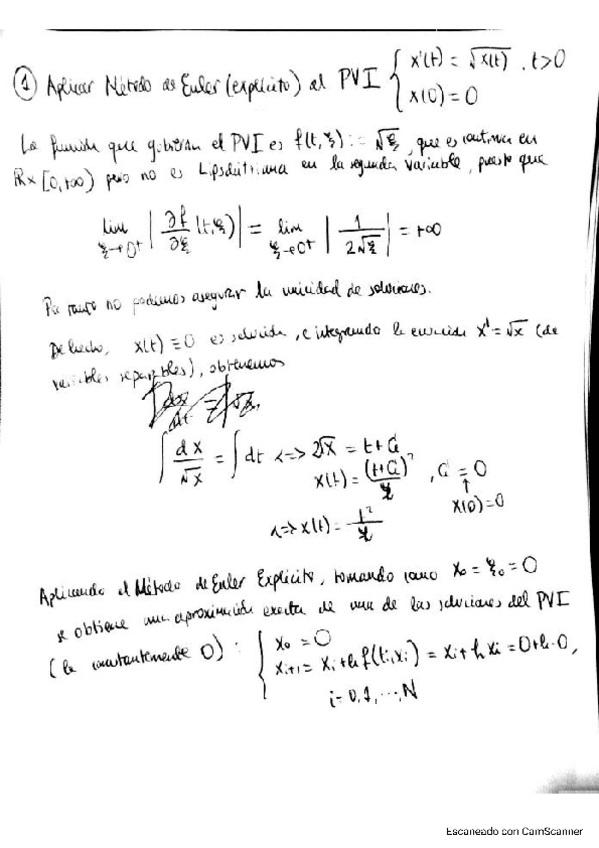 ① Aplicar Método de Euler (explícito) al PVI { x'(t) = √x(t), t>0
x(0) = 0
La función que gobierna el PVI es f(t,ξ) := √ξ, que es continua en
ℝ×[0,+∞) pero no es Lipschitziana en la segunda variable, puesto que
lim ξ→0⁺ | ∂f/∂ξ (t,ξ) | = lim ξ→0⁺ | 1/(2√ξ) | = +∞
Por tanto no podemos asegurar la unicidad de soluciones.
De hecho, x(t) ≡ 0 es solución, e integrando la ecuación x' = √x (de
variables separables), obtenemos
∫ dx/√x = ∫ dt <=> 2√x = t + C,
x(t) = (t+C)²/4, C = 0
↑
x(0)=0
<=> x(t) = t²/4
Aplicando el Método de Euler Explícito, tomando como x₀ = ξ₀ = 0
se obtiene una aproximación exacta de una de las soluciones del PVI
(la constantemente 0): { x₀ = 0
xᵢ₊₁ = xᵢ + h f(tᵢ,xᵢ) = xᵢ + h xᵢ = 0 + h·0,
i = 0,1,...,N
Escaneado con CamScanner